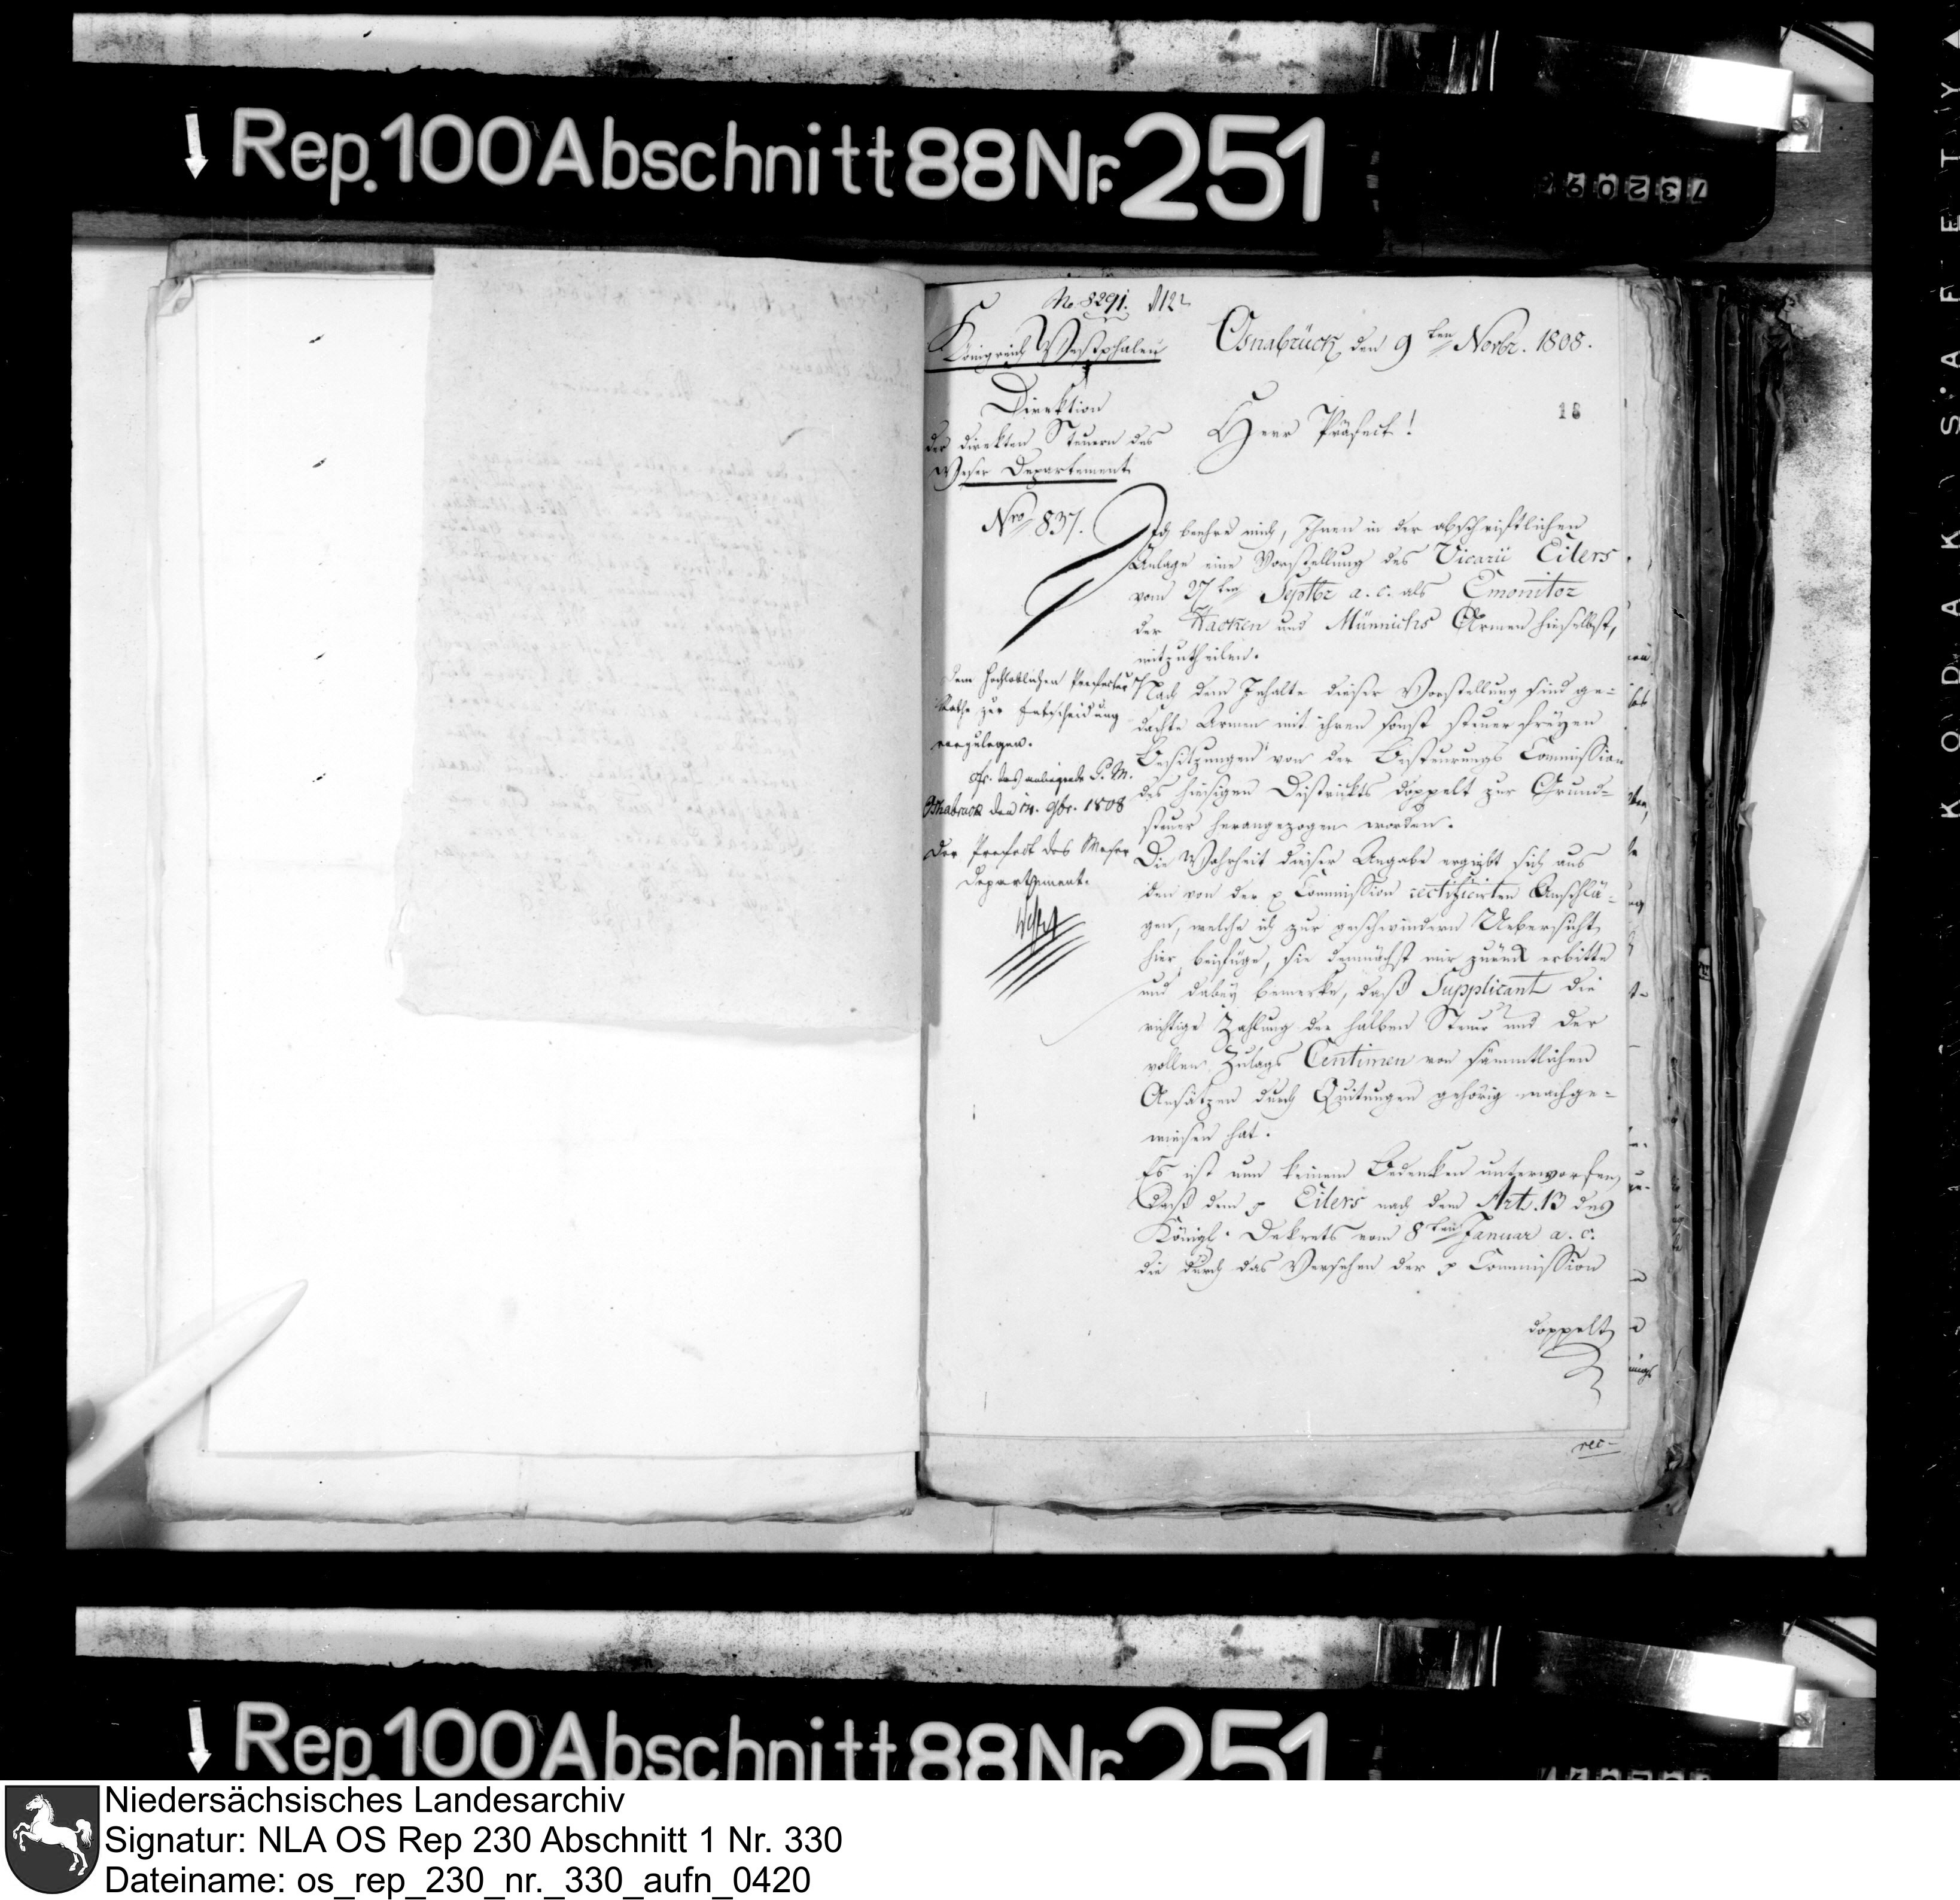 Rep. 100 Abschnitt 88 Nr. 251
732097
No. 8291.
Königreich Westphalen
Osnabrück, den 9ten Novbr. 1808.
18
Direktion
der direkten Steuern des
Weser Departement
Herr Präfect!
Nro. 837.
Ich beehre mich, Ihnen in der abschriftlichen
Anlage eine Vorstellung des Vicarii Eilers
vom 27ten Septbr a. c. als Emonitor
der Hacken und Münnichs Armen hieselbst,
mitzutheilen.
Nach dem Inhalte dieser Vorstellung sind ge-
dachte Armen mit ihren sonst steuerfreyen
Besitzungen von der Besteurungs Commission
des hiesigen Districkts doppelt zur Grund-
steuer herangezogen worden.
Die Wahrheit dieser Angabe ergiebt sich aus
den von der p Commission rectifizirten Anschlä-
gen, welche ich zur geschwindern Uebersicht
hier beifüge, sie demnächst mir zurück erbitte
und dabey bemerke, daß Supplicant die
richtige Zahlung der halben Steuer und der
vollen Zulags Centimen von sämmtlichen
Ansätzen durch Quitungen gehörig nachge-
wiesen hat.
Es ist nun keinem Bedenken unterworfen,
daß dem p Eilers nach dem Art. 13 des
Königl. Dekrets vom 8ten Januar a. c.
die durch das Versehen der p Commission
doppelt
Dem hochlöblichen Praefectur
Rathe zur Entscheidung
vorzulegen.
Osnabrück den 14. 9br. 1808
Der Praefect des Weser
Departement.
rec-
Rep. 100 Abschnitt 88 Nr. 251
KODAK SAFETY
Niedersächsisches Landesarchiv
Signatur: NLA OS Rep 230 Abschnitt 1 Nr. 330
Dateiname: os_rep_230_nr._330_aufn_0420